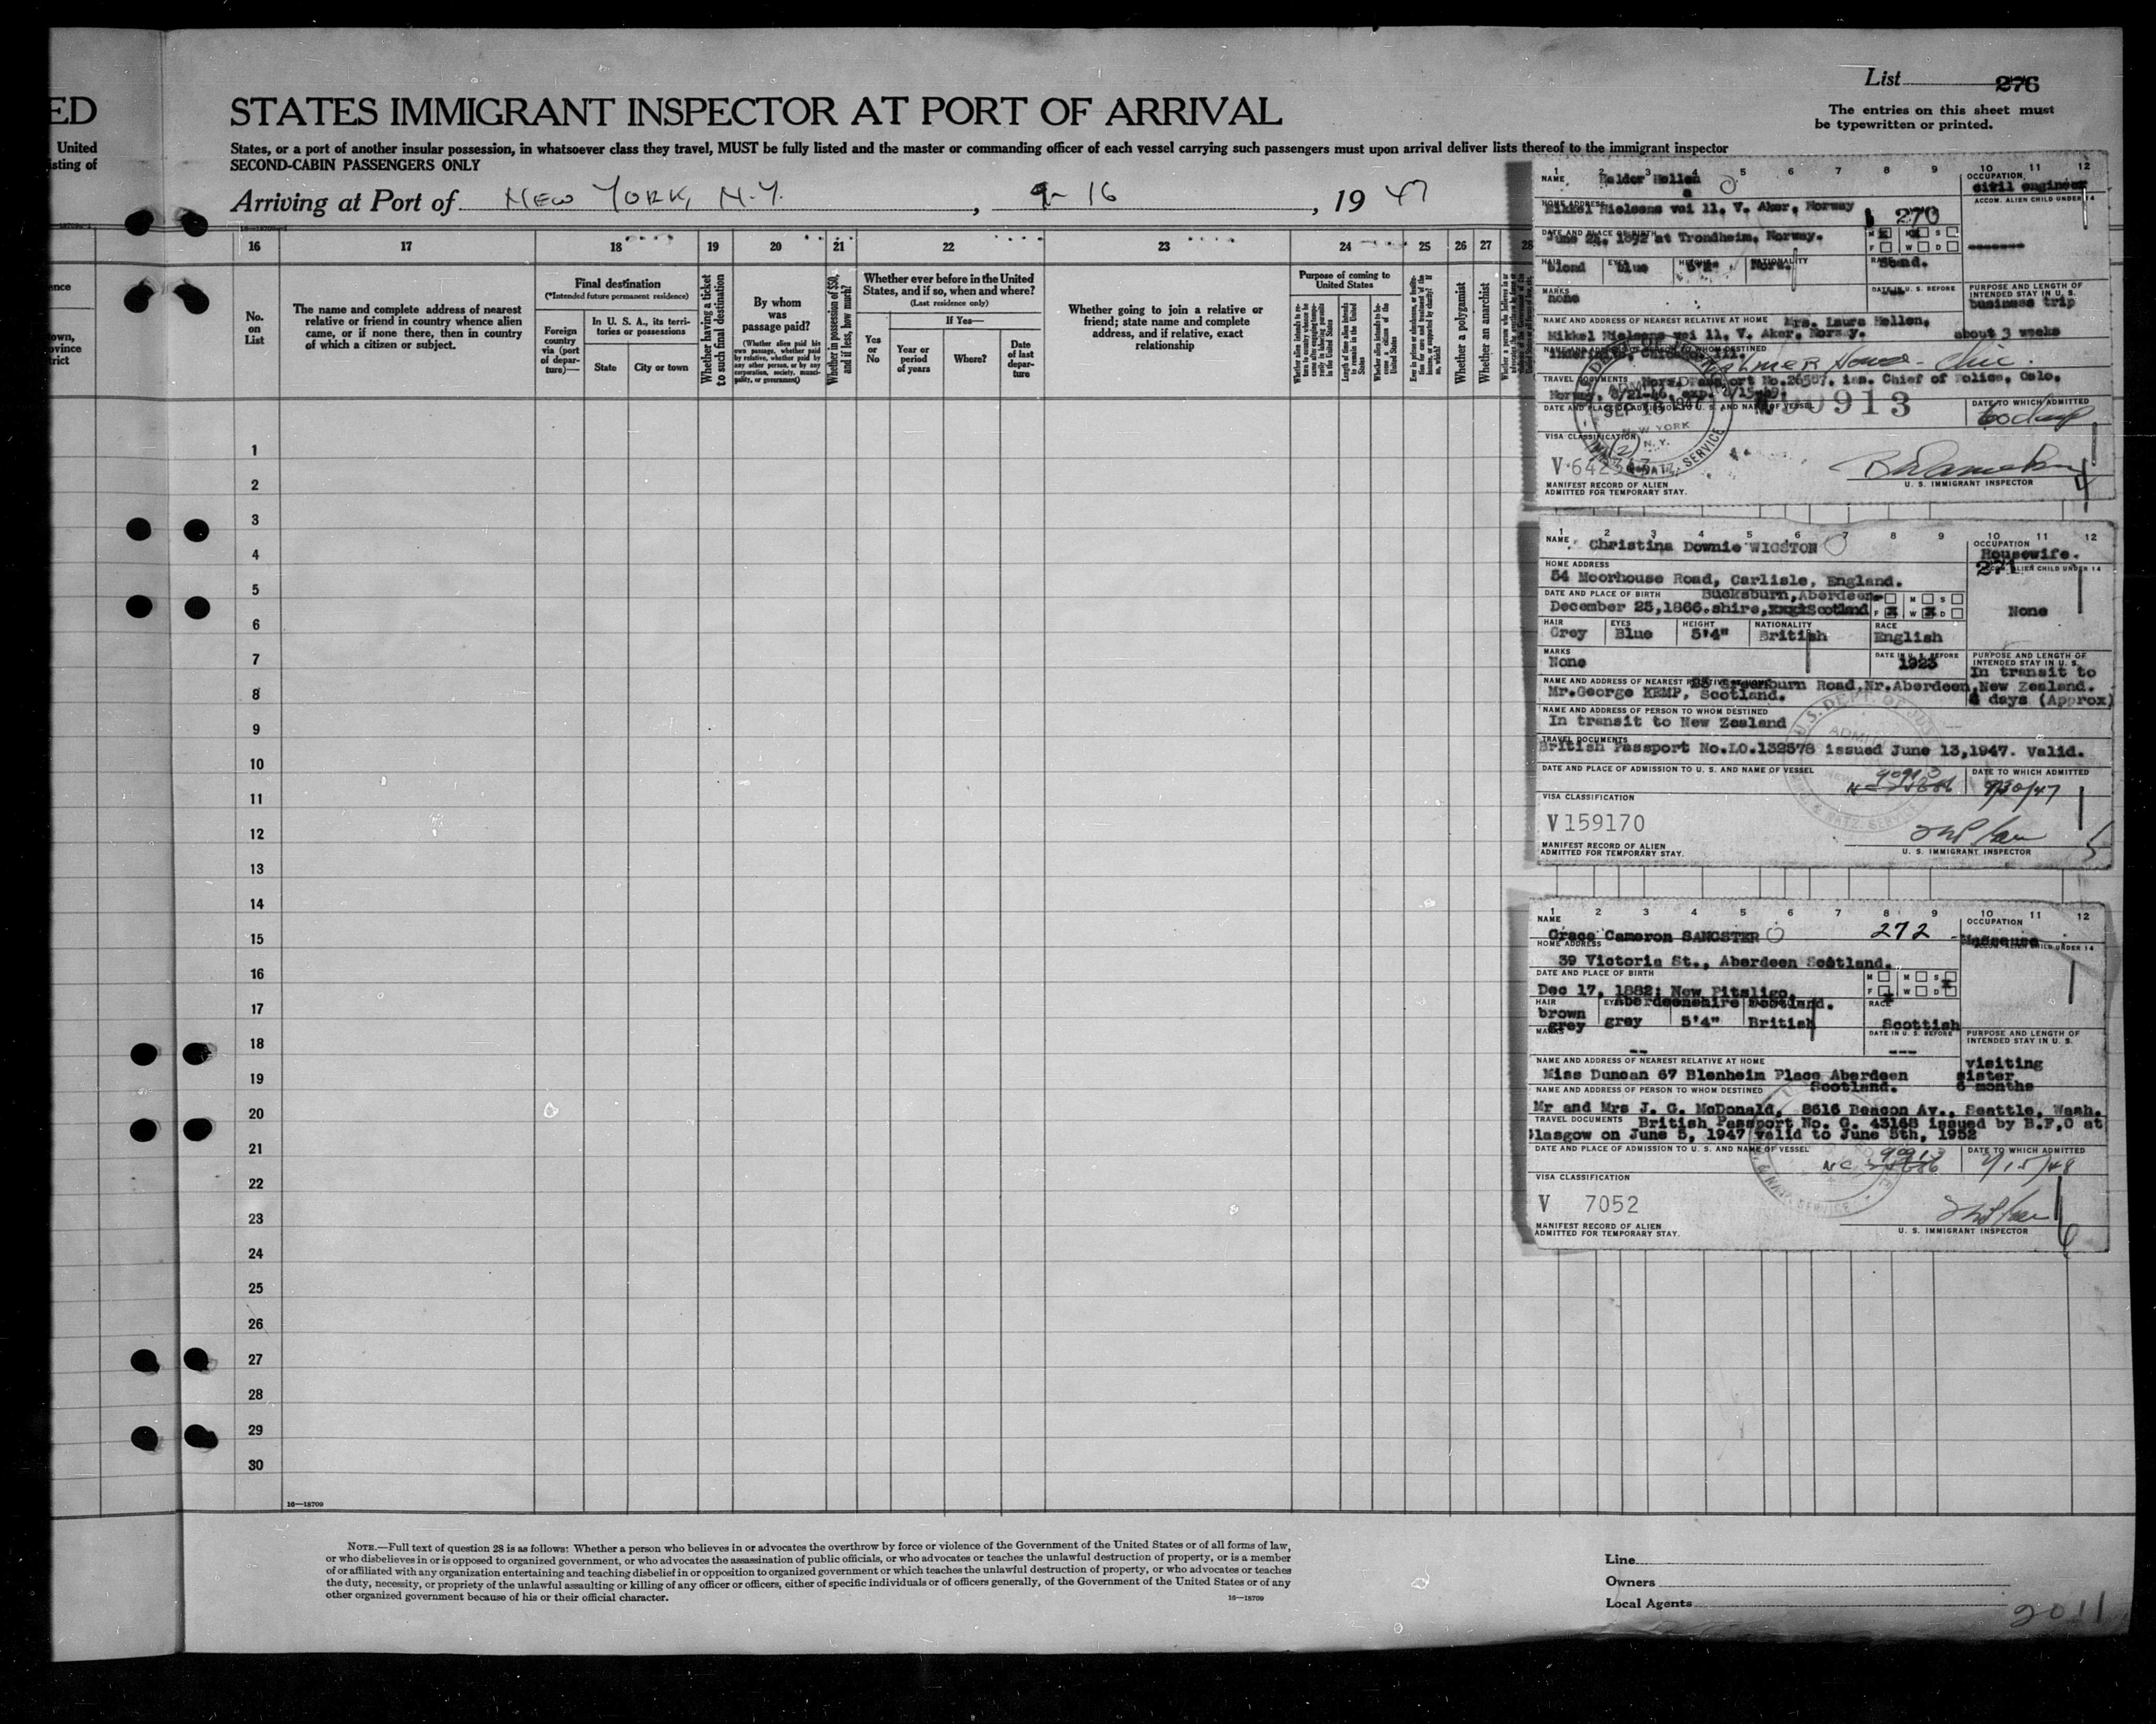 List 276
The entries on this sheet must
be typewritten or printed.
ED
STATES IMMIGRANT INSPECTOR AT PORT OF ARRIVAL
United
isting of
States, or a port of another insular possession, in whatsoever class they travel, MUST be fully listed and the master or commanding officer of each vessel carrying such passengers must upon arrival deliver lists thereof to the immigrant inspector
SECOND-CABIN PASSENGERS ONLY
Arriving at Port of NEW YORK, N.Y. , 9-16 , 1947
16 17 18 19 20 21 22 23 24 25 26 27 28
No.
on
List
The name and complete address of nearest
relative or friend in country whence alien
came, or if none there, then in country
of which a citizen or subject.
Final destination
(*Intended future permanent residence)
Foreign
country
via (port
of depar-
ture)—
In U. S. A., its terri-
tories or possessions
State
City or town
Whether having a ticket
to such final destination
By whom
was
passage paid?
(Whether alien paid his
own passage, whether paid
by relative, whether paid by
any other person, or by any
corporation, society, munici-
pality, or government)
Whether in possession of $50,
and if less, how much?
Whether ever before in the United
States, and if so, when and where?
(Last residence only)
Yes
or
No
If Yes—
Year or
period
of years
Where?
Date
of last
depar-
ture
Whether going to join a relative or
friend; state name and complete
address, and if relative, exact
relationship
Purpose of coming to
United States
Whether a polygamist
Whether an anarchist
1
2
3
4
5
6
7
8
9
10
11
12
13
14
15
16
17
18
19
20
21
22
23
24
25
26
27
28
29
30
16—18709
1 2 3 4 5 6 7 8 9 10 11 12
NAME Hellen
OCCUPATION
civil engineer
HOME ADDRESS
Mikkel Nielsens vei 11, V. Aker, Norway
270
ACCOM. ALIEN CHILD UNDER 14
DATE AND PLACE OF BIRTH
1892 at Trondheim, Norway.
M M S
F W D
HAIR blond EYES blue HEIGHT NATIONALITY Norw. RACE Scand.
MARKS none
DATE IN U. S. BEFORE
PURPOSE AND LENGTH OF
INTENDED STAY IN U. S.
business trip
NAME AND ADDRESS OF NEAREST RELATIVE AT HOME Mrs. Laura Hellen,
Mikkel Nielsens vei 11, V. Aker, Norway. about 3 weeks
Chicago, Ill.
TRAVEL DOCUMENTS Norw. Passport iss. Chief of Police, Oslo,
Norway,
DATE AND PLACE OF ADMISSION TO U. S. AND NAME OF VESSEL
DATE TO WHICH ADMITTED
VISA CLASSIFICATION
MANIFEST RECORD OF ALIEN
ADMITTED FOR TEMPORARY STAY.
U. S. IMMIGRANT INSPECTOR
1 2 3 4 5 6 7 8 9 10 11 12
NAME Christina Downie WIGSTON
OCCUPATION
Housewife.
HOME ADDRESS
54 Moorhouse Road, Carlisle, England.
271
ALIEN CHILD UNDER 14
None
DATE AND PLACE OF BIRTH Bucksburn, Aberdeen-
December 25, 1866. shire, Scotland
M M S
F W D
HAIR Grey EYES Blue HEIGHT 5'4" NATIONALITY British RACE English
MARKS None
DATE IN U. S. BEFORE 1923
PURPOSE AND LENGTH OF
INTENDED STAY IN U. S.
In transit to
New Zealand.
days (Approx)
NAME AND ADDRESS OF NEAREST RELATIVE Greenburn Road, Nr. Aberdeen,
Mr. George KEMP, Scotland.
NAME AND ADDRESS OF PERSON TO WHOM DESTINED
In transit to New Zealand
TRAVEL DOCUMENTS
British Passport No. LO.132578 issued June 13, 1947. Valid.
DATE AND PLACE OF ADMISSION TO U. S. AND NAME OF VESSEL
DATE TO WHICH ADMITTED
9/30/47
VISA CLASSIFICATION
V 159170
MANIFEST RECORD OF ALIEN
ADMITTED FOR TEMPORARY STAY.
U. S. IMMIGRANT INSPECTOR
1 2 3 4 5 6 7 8 9 10 11 12
NAME
Grace Cameron SANGSTER
272
OCCUPATION
HOME ADDRESS
39 Victoria St., Aberdeen Scotland.
DATE AND PLACE OF BIRTH
Dec 17, 1882; New Pitsligo,
Aberdeenshire Scotland.
M M S
F W D
HAIR brown grey EYES grey 5'4" British RACE Scottish
MARKS --
DATE IN U. S. BEFORE ---
PURPOSE AND LENGTH OF
INTENDED STAY IN U. S.
visiting
sister
6 months
NAME AND ADDRESS OF NEAREST RELATIVE AT HOME
Miss Duncan 67 Blenheim Place Aberdeen
Scotland.
NAME AND ADDRESS OF PERSON TO WHOM DESTINED
Mr and Mrs J. G. McDonald, 8616 Beacon Av., Seattle, Wash.
TRAVEL DOCUMENTS British Passport No. G. 43168 issued by B.F.O at
Glasgow on June 5, 1947 valid to June 5th, 1952
DATE AND PLACE OF ADMISSION TO U. S. AND NAME OF VESSEL
DATE TO WHICH ADMITTED
VISA CLASSIFICATION
V 7052
MANIFEST RECORD OF ALIEN
ADMITTED FOR TEMPORARY STAY.
U. S. IMMIGRANT INSPECTOR
NOTE.—Full text of question 28 is as follows: Whether a person who believes in or advocates the overthrow by force or violence of the Government of the United States or of all forms of law,
or who disbelieves in or is opposed to organized government, or who advocates the assassination of public officials, or who advocates or teaches the unlawful destruction of property, or is a member
of or affiliated with any organization entertaining and teaching disbelief in or opposition to organized government or which teaches the unlawful destruction of property, or who advocates or teaches
the duty, necessity, or propriety of the unlawful assaulting or killing of any officer or officers, either of specific individuals or of officers generally, of the Government of the United States or of any
other organized government because of his or their official character.
16—18709
Line
Owners
Local Agents
2011